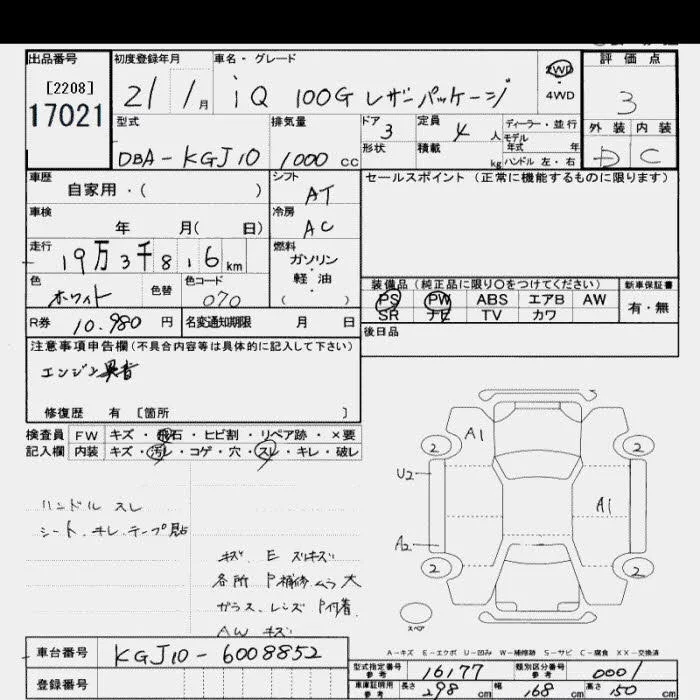 出品番号 初度登録年月 車名・グレード 評価点
[2208]
17021
21 1月 iQ 100G レザーパッケージ 2WD・4WD 3
型式 排気量 ドア 定員 ディーラー・並行 外装 内装
3 4人 モデル年式 年
形状 積載 kg ハンドル 左・右
DBA-KGJ10 1000cc D C
車歴 シフト セールスポイント (正常に機能するものに限ります)
自家用・( ) AT
車検 冷房
年 月( 日) AC
走行 燃料
19万3千816km ガソリン・軽油( )
色 色替 色コード 装備品(純正品に限り○をつけてください) 新車保証書
ホワイト 070 PS PW ABS エアB AW 有・無
SR ナビ TV カワ
R券 10.980円 名変通知期限 月 日 後日品
注意事項申告欄(不具合内容等は具体的に記入して下さい)
エンジン異音
修復歴 有 [箇所 ]
検査員 FW キズ・飛石・ヒビ割・リペア跡・×要
記入欄 内装 キズ・汚レ・コゲ・穴・スレ・キレ・破レ
A1 2 2
U2 A1
A2
2 2
スペア
ハンドル スレ
シート、キレ、テープ貼
キズ、E ズキズ
各所 P補修ムラ大
ガラス、レンズ P付着
AW キズ
A-キズ E-エクボ U-凹み W-補修跡 S-サビ C-腐食 XX-交換済
車台番号 KGJ10-6008852
型式指定番号参考 16177 類別区分番号参考 0001
登録番号
車庫証明用参考 長さ 298cm 幅 168cm 高さ 150cm